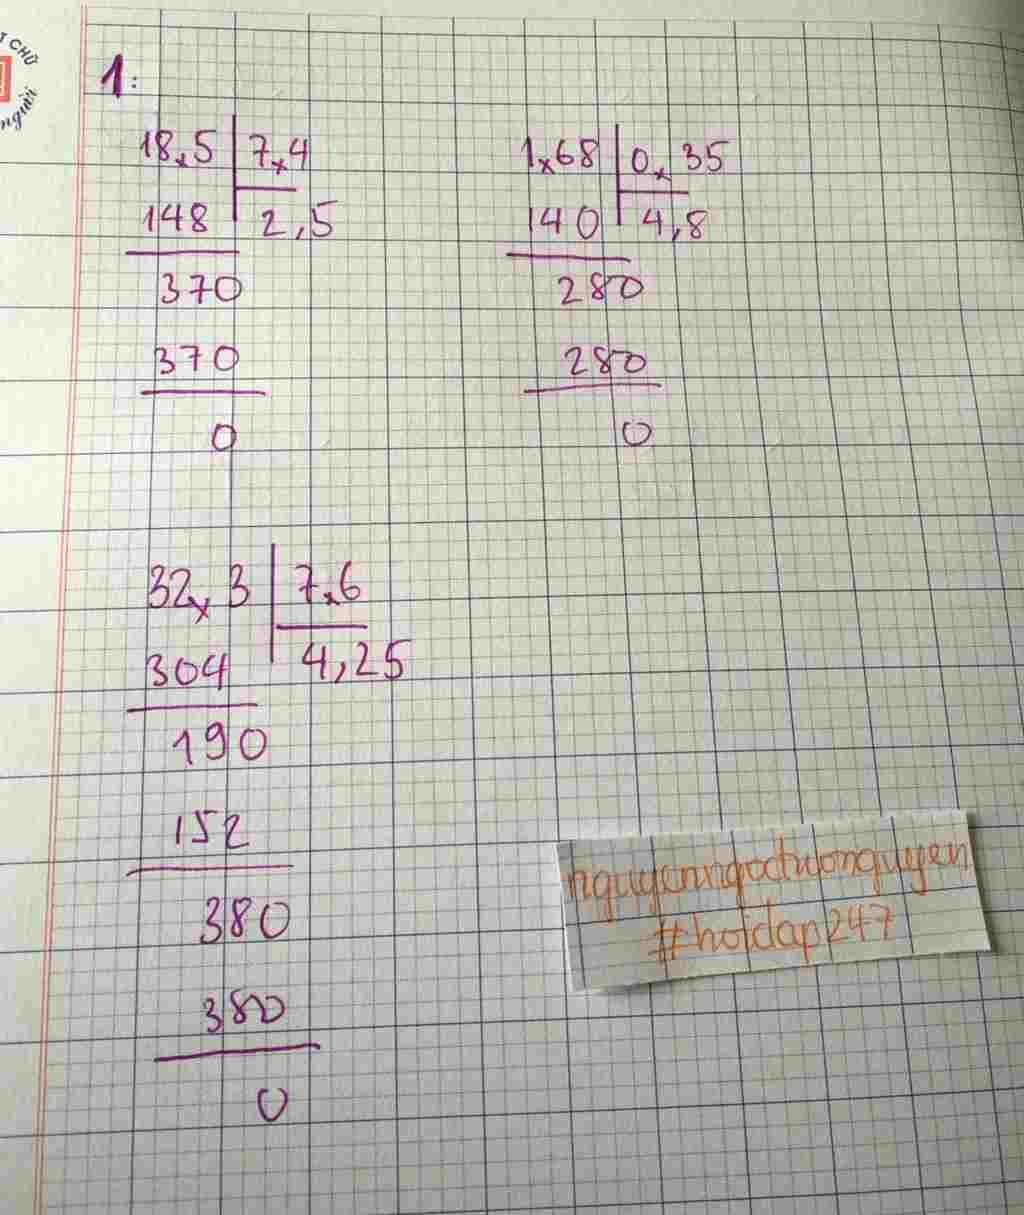 T CHỮ
người
1:
18,5 7,4
148 2,5
370
370
0
1,68 0,35
140 4,8
280
280
0
32,3 7,6
304 4,25
190
152
380
380
0
nguyenngoctuonguyen
#hoidap247